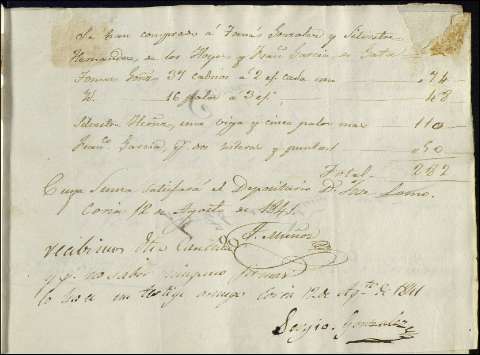 Se han comprado á Tomás Gonzalez y Silvestre
Hernandez, de los Hoyos y Franco Garcia de Gata
Tomas Gonz 37 cabrios á 2 rs cada uno 074
Id. 16 palos á 3 rs 48
Silvestre Hernz, una viga y cinco palos mas 110
Franco Garcia, pr dos y puntas 050
Total 282
Cuya Suma satisfará el Depositario Dn Jose Lomo.
Coria 12 de Agosto de 1841.
F. Muñoz
recibimos esta Cantidad
y pr no saber ninguno firmar
lo hace un testigo a ruego Coria 12 de Agto de 1841
Sergio Gonzalez